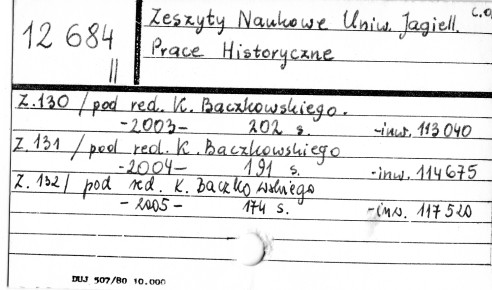 c.d.
12 684
II
Zeszyty Naukowe Uniw. Jagiell.
Prace Historyczne
Z.130 / pod red. K. Baczkowskiego.
-2003- 202 s. -inw. 113040
Z.131 / pod red. K. Baczkowskiego
-2004- 191 s. -inw. 114675
Z.132 / pod red. K. Baczkowskiego
-2005- 174 s. -inw. 117520
DUJ 507/80 10.000